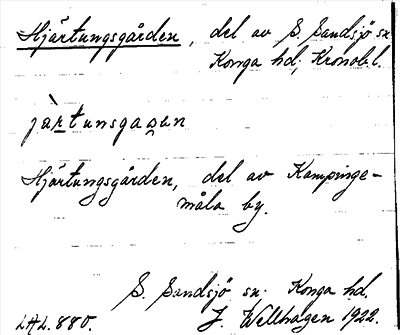 Hjärtungsgården, del av S. Sandsjö sn
Konga hd, Kronob. l.
jàr̲tunsgaɷen
Hjärtungsgården, del av Kampinge-
måla by.
S. Sandsjö sn. Konga hd.
LAL. 880. J. Wellhagen 1922.